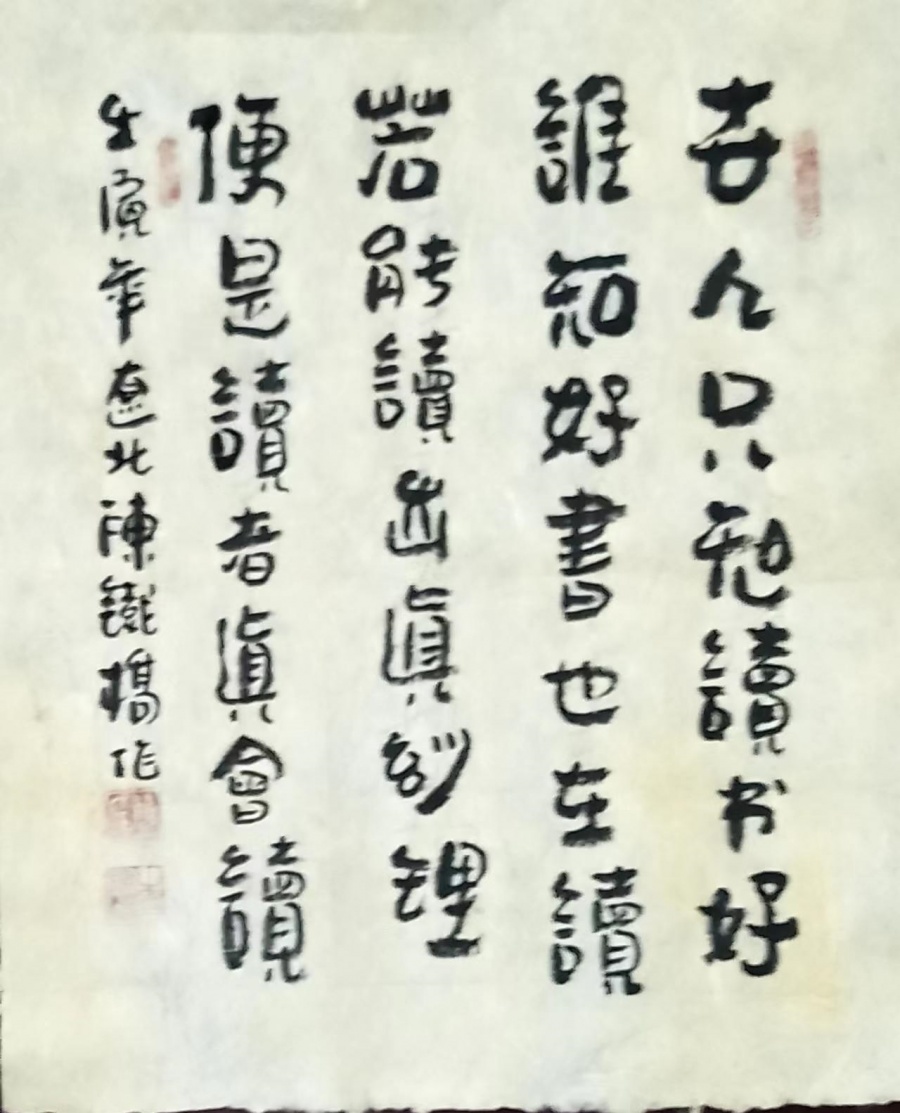 世人只知讀书好
誰知好書也在讀
若能讀出眞妙理
便是讀者眞會讀
壬寅年遼北陳鐵橋作